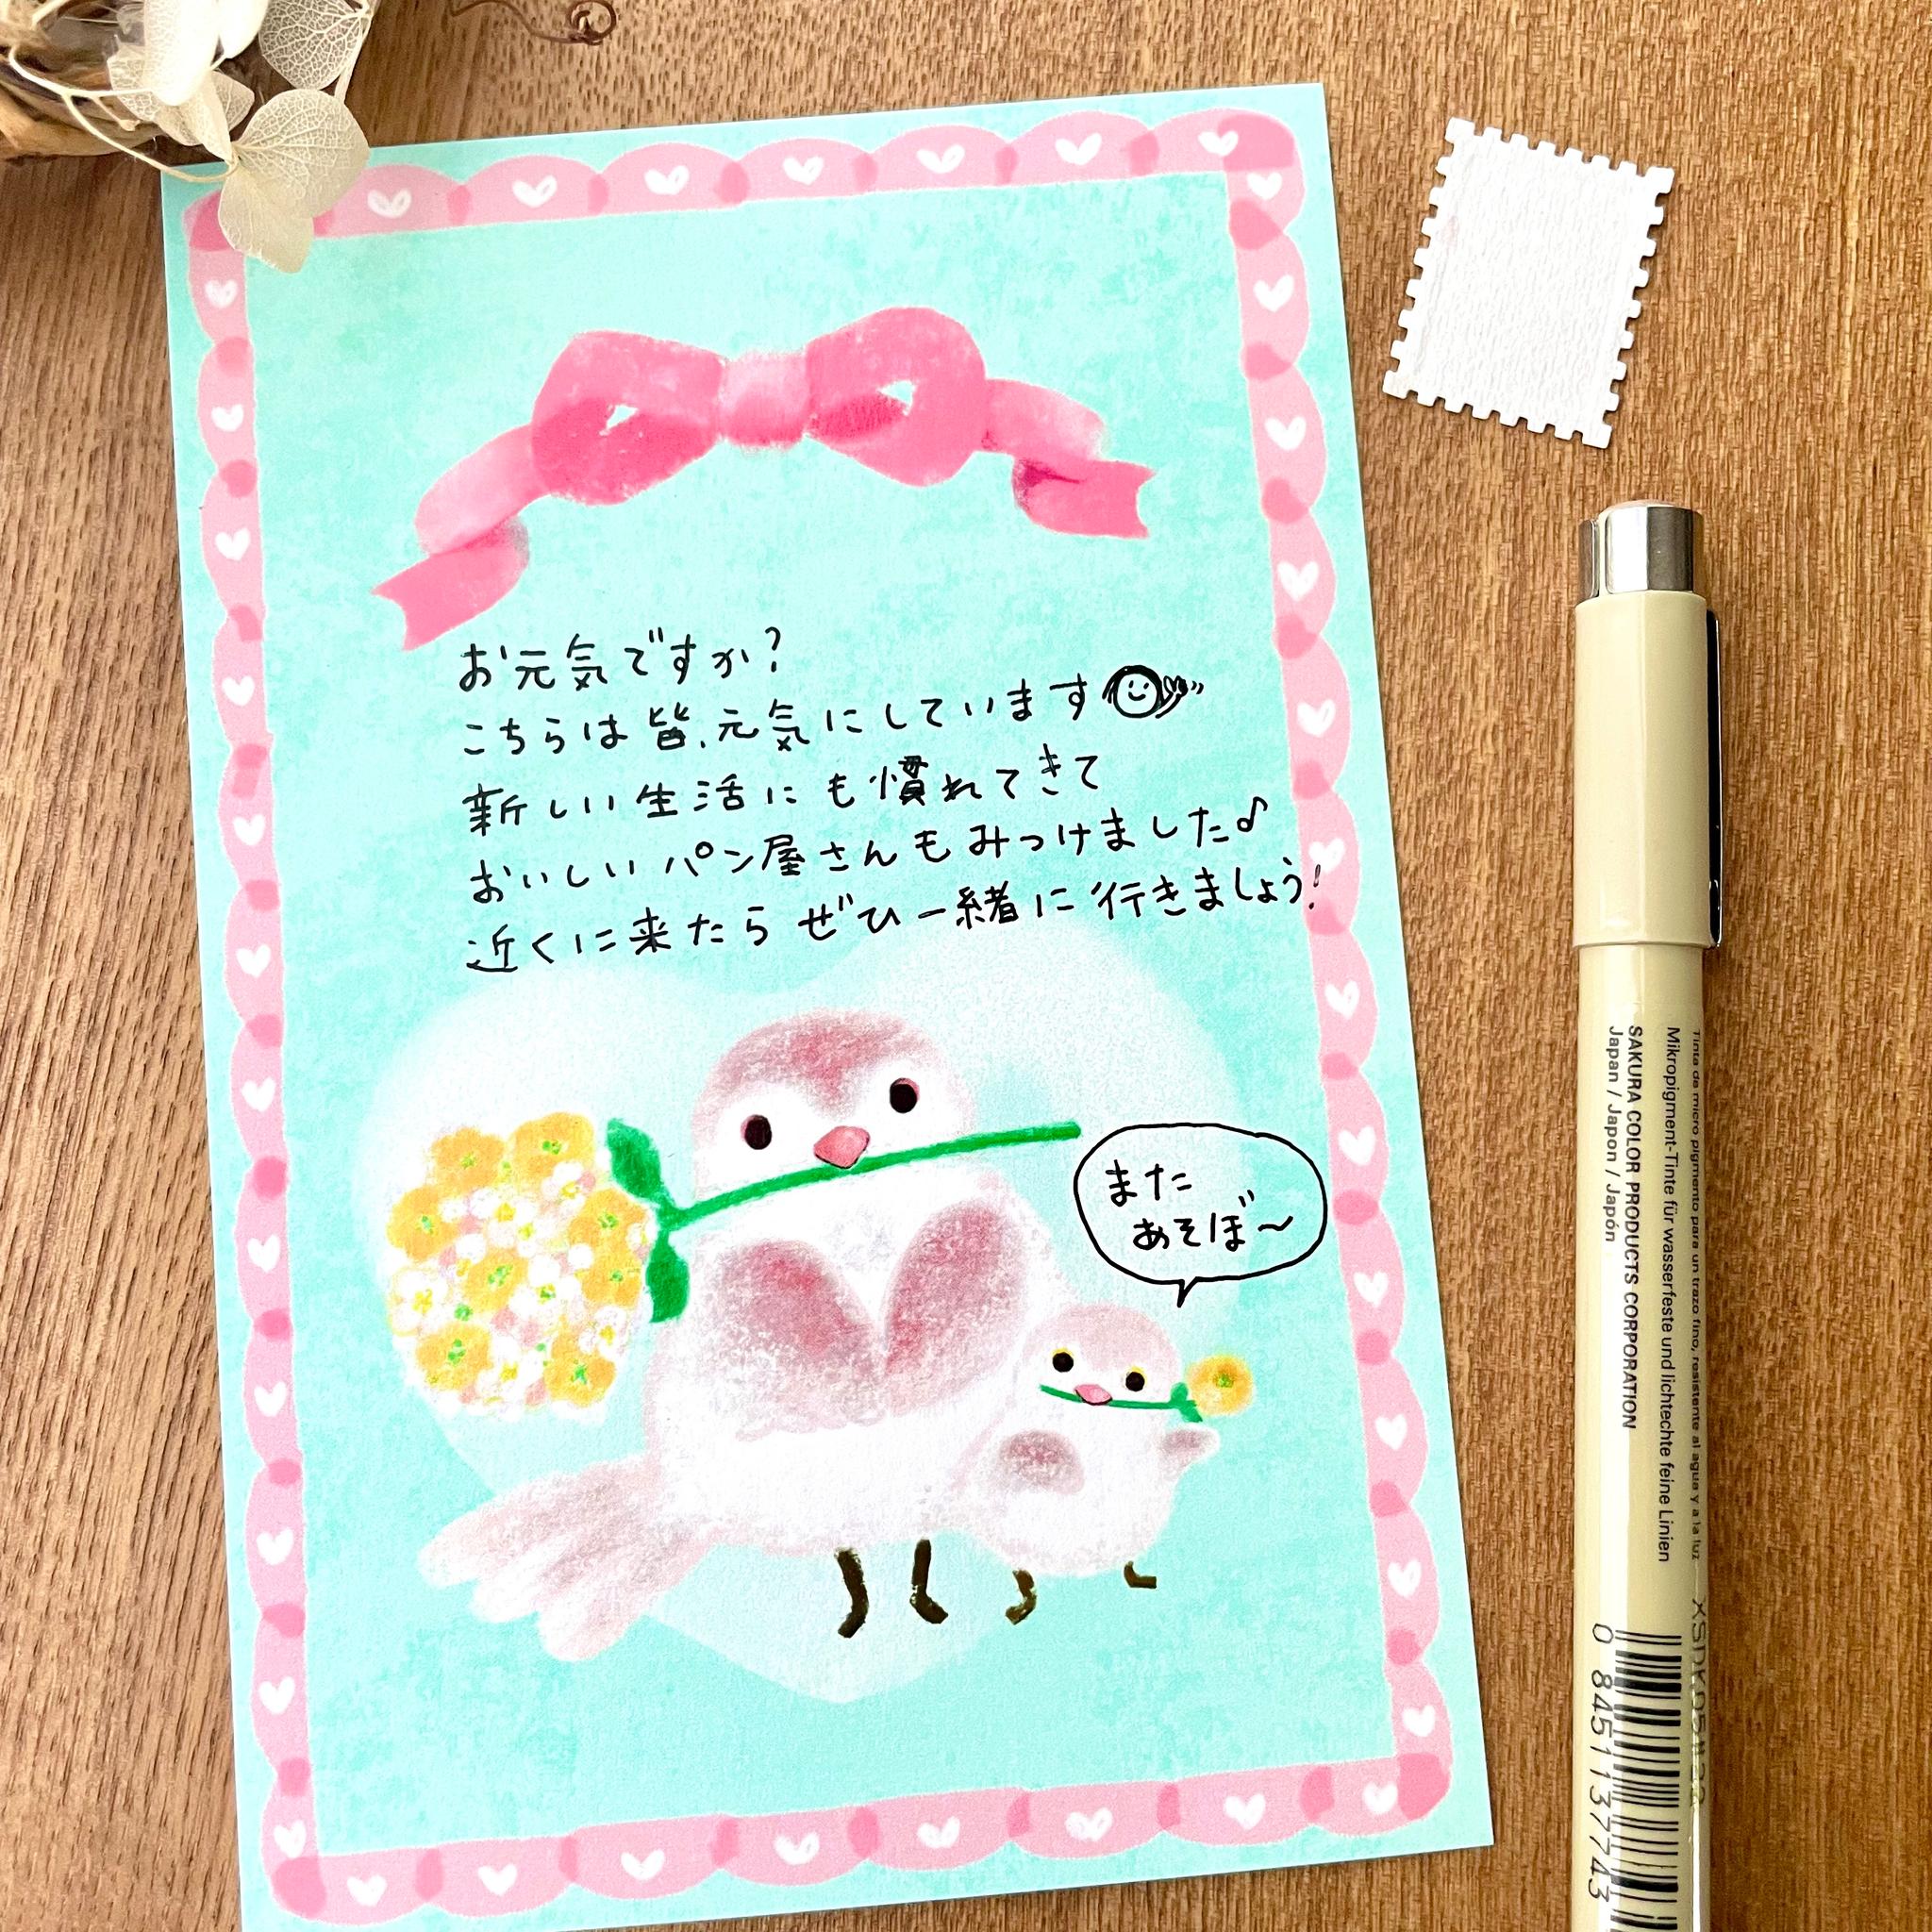 お元気ですか?
こちらは皆、元気にしています
新しい生活にも慣れてきて
おいしいパン屋さんもみつけました♪
近くに来たらぜひ一緒に行きましょう!
また
あそぼ〜
Tinta de micro pigmento para un trazo fino, resistente al agua y a la luz
Mikropigment-Tinte für wasserfeste und lichtechte feine Linien
SAKURA COLOR PRODUCTS CORPORATION
Japan / Japon / Japón
0 84511 37743